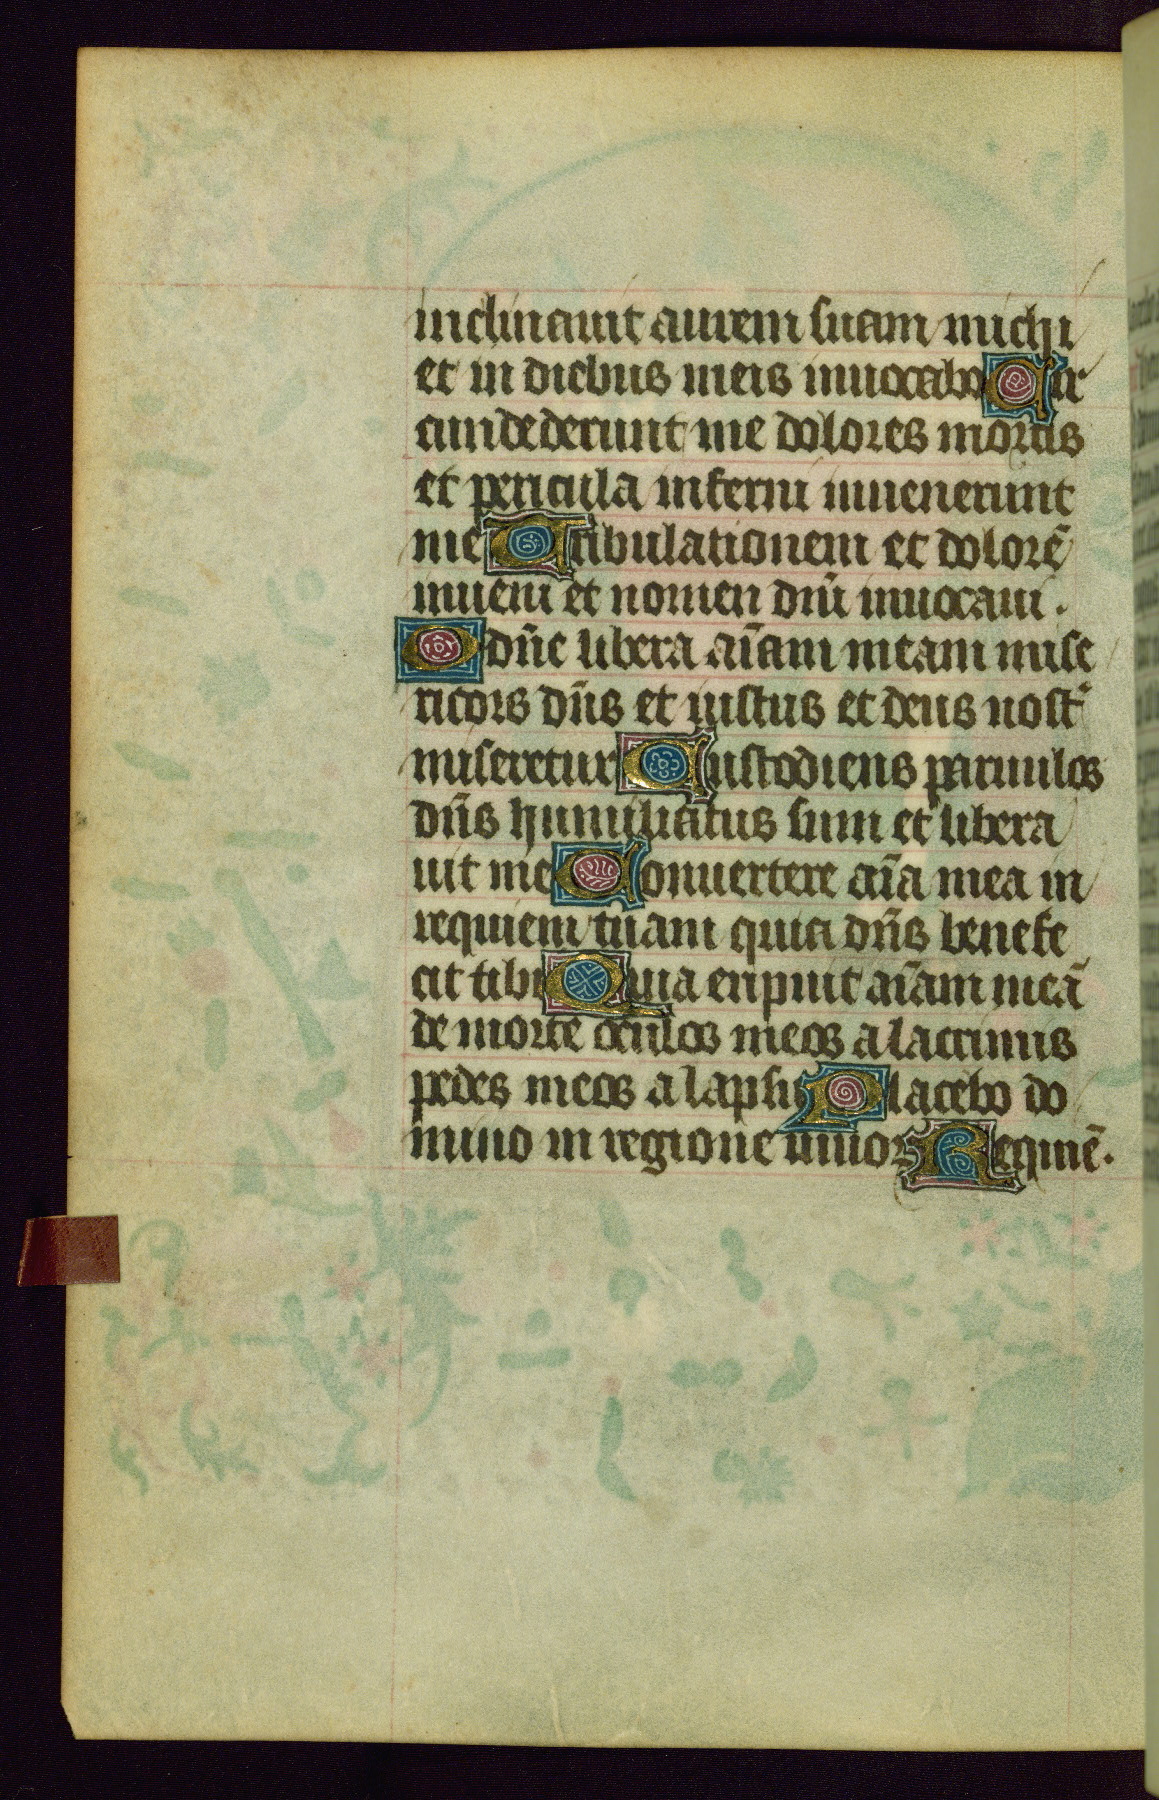 inclinauit aurem suam michi
et in diebus meis inuocabo Cir
cumdederunt me dolores mortis
et pericula inferni inuenerunt
me Tribulationem et dolorē
inueni et nomen dn̄i inuocaui .
O dn̄e libera aīam meam mise
ricors dn̄s et iustus et deus nostʳ
miseretur Custodiens paruulos
dn̄s humiliatus sum et libera
uit me Conuertere aīa mea in
requiem tuam quia dn̄s benefe
cit tibi Quia eripuit aīam meā
de morte oculos meos a lacrimis
pedes meos a lapsu Placebo do
mino in regione uiuorꝫ Requiē.